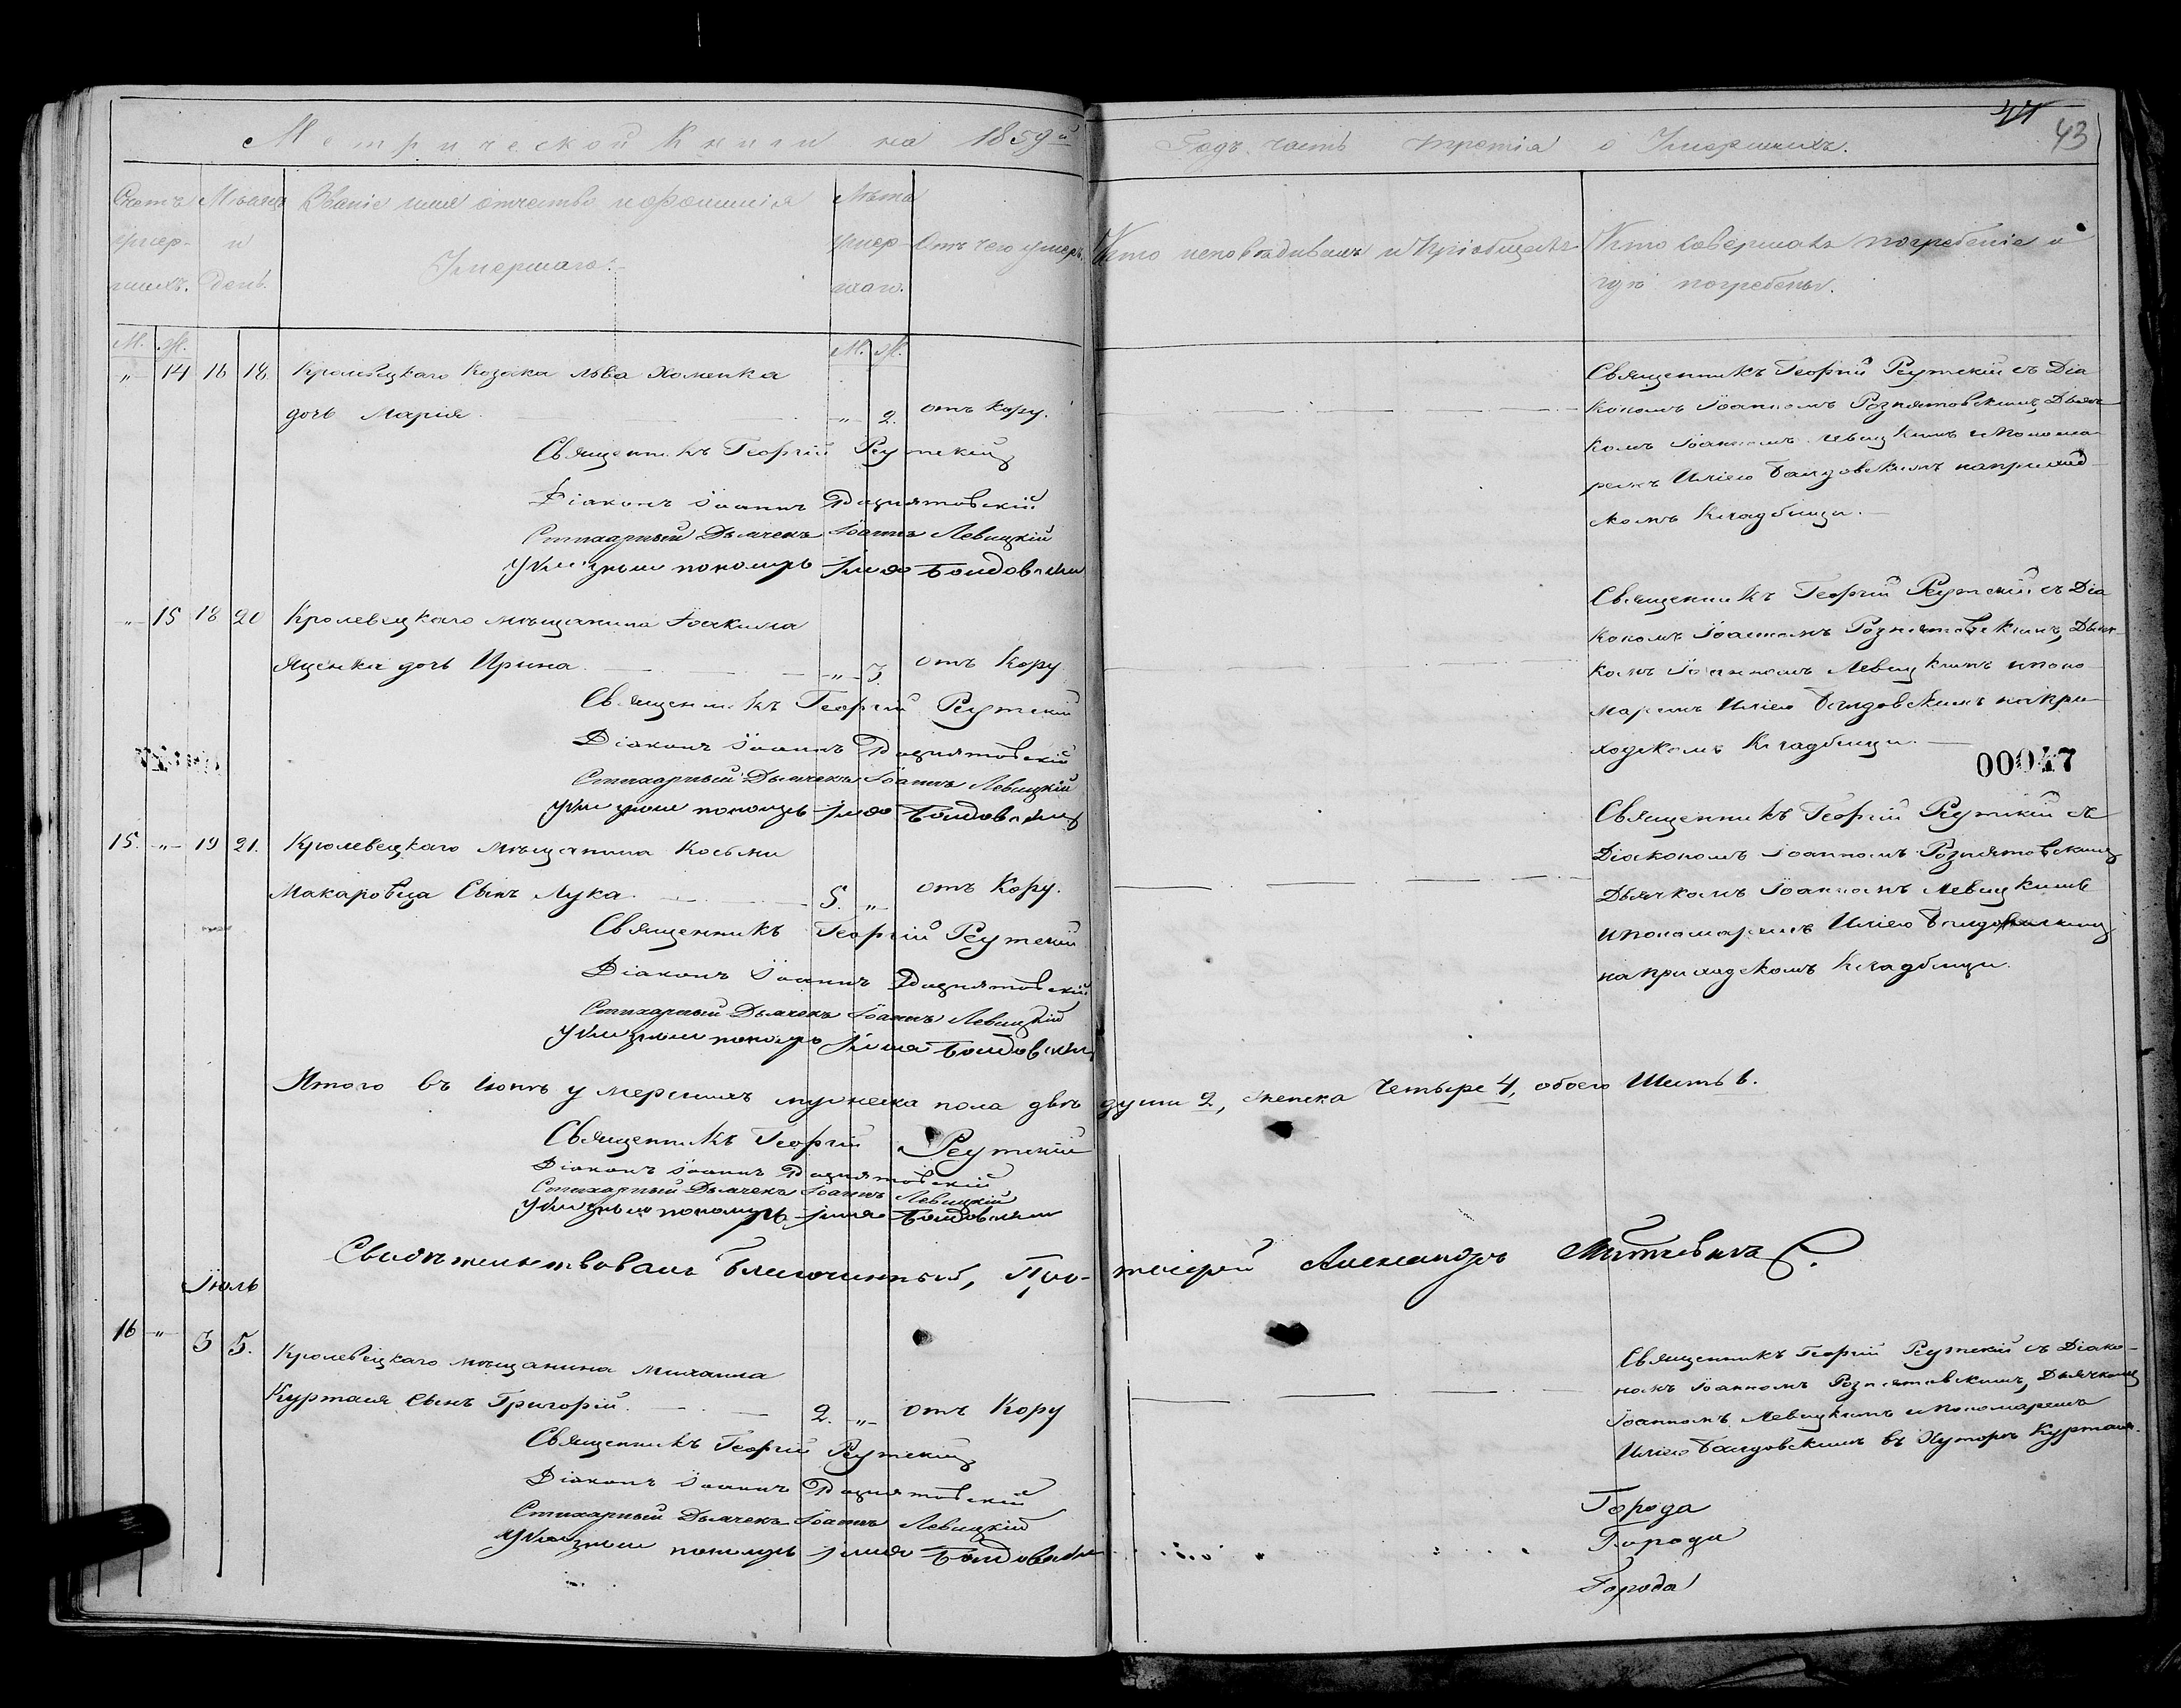 44
43
Метрической Книги на 1859й
Годъ часть третія о Умершихъ.
Счетъ умер- шихъ.
Мѣсяцъ и день.
Званіе имя отчество и фамилія Умершаго.
Лѣта умер- шаго.
Отъ чего умеръ.
Кто исповѣдывалъ и Пріобщалъ
Кто Совершалъ погребеніе и
гдѣ погребены.
М. Ж.
М. Ж.
" 14 16 18. Кролевецкаго Козака Льва Хоменка
дочь Марія. " 2. отъ Кору.
Священникъ Георгій Реутскій
Діаконъ Іоаннъ Рознятовскій
Стихарный Дьячекъ Іоаннъ Левицкій
Священникъ Георгій Реутскій съ Діа
кономъ Іоанномъ Рознятовскимъ, Дьяч
комъ Іоанномъ Левицкимъ и Понома
ремъ Иліею на приход
скомъ Кладбищи.
" 15 18 20 Кролевецкаго мѣщанина Іоакима
Яценка дочь Ирина. " 3. отъ Кору
Священникъ Георгій Реутскій
Діаконъ Іоаннъ Рознятовскій
Стихарный Дьячекъ Іоаннъ Левицкій
Священникъ Георгій Реутскій съ Діа
кономъ Іоанномъ Рознятовскимъ, Дьяч-
комъ Іоанномъ Левицкимъ и поно
маремъ Иліею на при
ходскомъ Кладбищи.
00047
15. " 19 21. Кролевецкаго Мѣщанина Косьми
Макаровца Сынъ Лука. 5. " отъ Кору.
Священникъ Георгій Реутскій
Діаконъ Іоаннъ Рознятовскій
Стихарный Дьячекъ Іоаннъ Левицкій
Священникъ Георгій Реутскій съ
Діакономъ Іоанномъ Рознятовскимъ
Дьячкомъ Іоанномъ Левицкимъ
и пономаремъ Иліею
на приходскомъ Кладбищи.
Итого въ Іюнѣ умершихъ мужеска пола двѣ души 2, женска Четыре 4, обоего Шесть 6.
Священникъ Георгій Реутскій
Діаконъ Іоаннъ Рознятовскій
Стихарный Дьячекъ Іоаннъ Левицкій
Свидѣтельствовалъ Благочинный, Протоіерей Александръ
Іюль
16 " 3 5. Кролевецкаго мѣщанина Михаила
Курталя Сынъ Григорій. 2. " отъ Кору
Священникъ Георгій Реутскій
Діаконъ Іоаннъ Рознятовскій
Стихарный Дьячекъ Іоаннъ Левицкій
Священникъ Георгій Реутскій съ Діако-
номъ Іоанномъ Рознятовскимъ, Дьячкомъ
Іоанномъ Левицкимъ и Пономаремъ
Иліею въ Хуторѣ Курталя.
Города
Города
Города